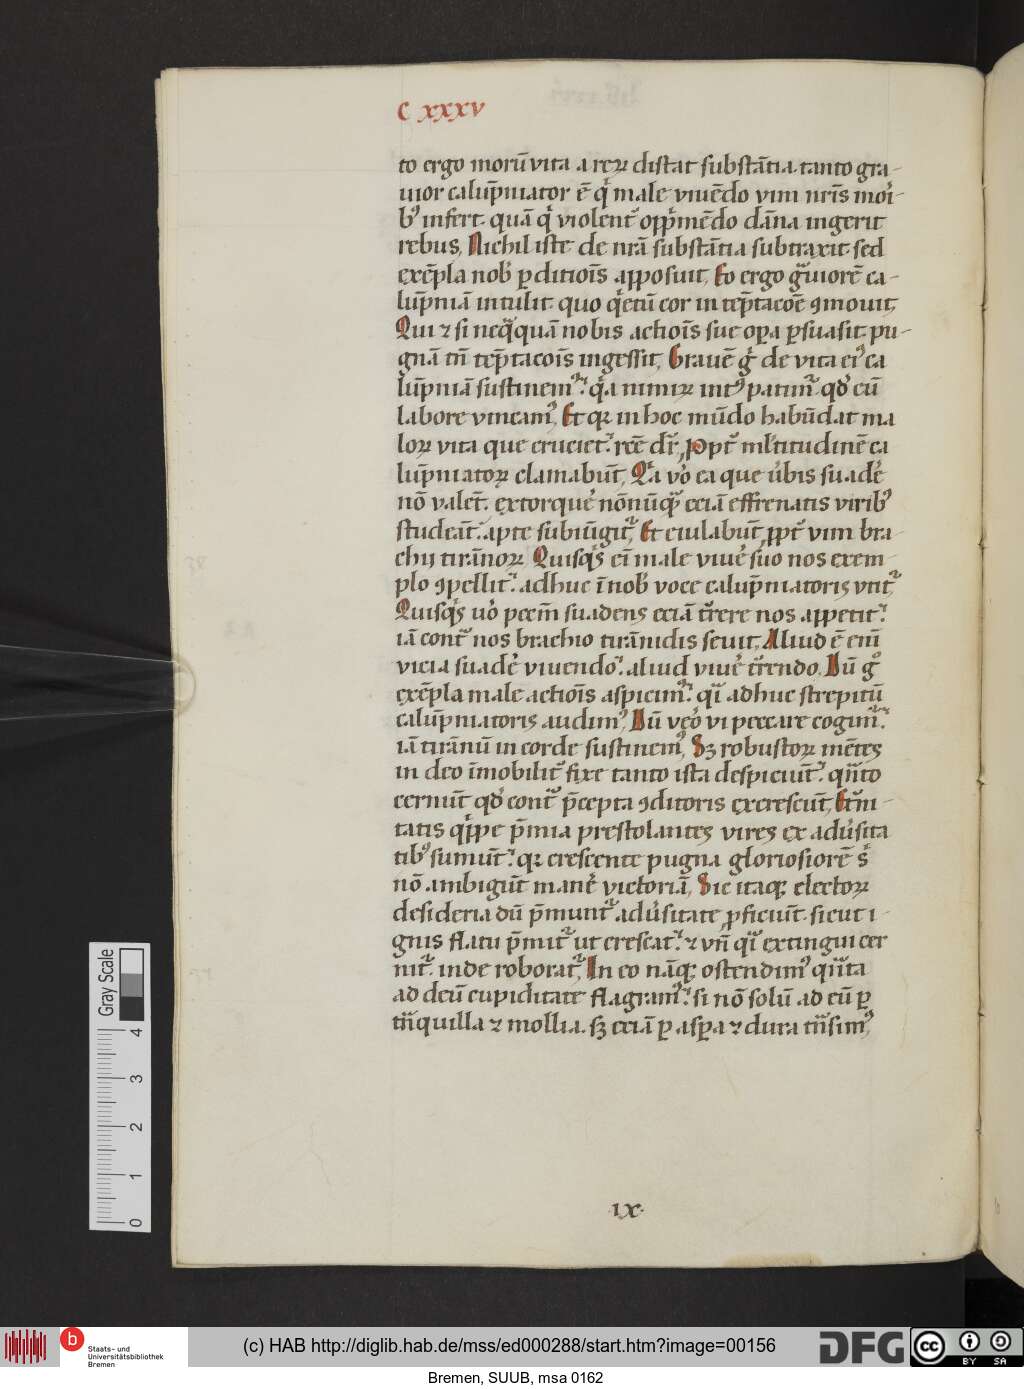 C xxxv
to ergo morū vita a reꝝ distat substātia. tanto gra-
uior calūpniator ē q̇ male viuēdo vim nr̄is mori-
bꝰ infert. quā q̇ violent᷒ opp̄mēdo dāna ingerit
rebus, Nichil iste de nr̄a substātia subtraxit. sed
exēpla nob᷒ ꝑditiōis apposuit, Eo ergo g̈uiorē ca-
lūpniā intulit. quo q̇etū cor in tēptacōe ꝯmouit,
Qui ⁊ si neq̈quā nobis actiōis sue oꝑa ꝑsuasit. pu-
gnā tn̄ tēptacōis ingessit, Grauē g᷒ de vita eiꝰ ca
lūpniā sustinemꝰ. q̇a nimiꝝ intꝰ patim᷒ qd᷒ cū
labore vincamꝰ, Et qꝛ in hoc mūdo habūdat ma
loꝝ vita que cruciet. rcē dr̄, Ꝓpt᷒ ml̄titudinē ca
lūpniatoꝝ clamabūt, Qa vo᷒ ea que v᷒bis suade᷒
nō valēt. extorque᷒ nōnūq̈ eciā effrenatis viribꝰ
studēt. apte subiūgit᷒, Et eiulabūt ꝓpt᷒ vim bra-
chij tirānoꝝ Quisq̇s ei̅ male viue᷒ suo nos exem-
plo ꝯpellit. adhuc ī nob᷒ voce calūpniatoris vtit᷒
Quisq̇s vo᷒ pccm̄ suadens eciā t᷒rere nos appetit.
iā cont᷒ nos brachio tirānidis seuit, Aliud ē eni̅
vicia suade᷒ viuendo. aliud viue᷒ t᷒rendo. Dū g᷒
exēpla male actiōis aspicim᷒. q̈i adhuc strepitū
calūpniatoris audimꝰ, Dū veo᷒ vi peccare cogim᷒.
iā tirānū in corde sustinemꝰ, Sꝫ robustoꝝ mētes
in deo īmobilit᷒ fixe tanto ista despiciūt. q̈nto
cernūt qd᷒ cont᷒ p̄cepta ꝯditoris excrescūt, Et᷒ni-
tatis q̇ppe p̄mia prestolantes vires ex adu᷒sita
tibꝰ sumūt. qꝛ crescente pugna gloriosiorē s᷒
nō ambigūt mane᷒ victoriā, Sic itaqꝫ electoꝝ
desideria dū p̄munt᷒ adu᷒sitate ꝓficiūt. sicut i-
gnis flatu p̄mit᷒ ut crescat. ⁊ vn̄ q̈i extingui cer
nit᷒. inde roborat᷒, In eo nāqꝫ ostendimꝰ q̈nta
ad deū cupiditate flagramꝰ. si nō solū ad eū ꝑ
tn̈quilla ⁊ mollia. sꝫ eciā ꝑ asꝑa ⁊ dura tn̈simꝰ,
.ix.
Gray Scale
4
3
2
1
0
b
Staats- und
Universitätsbibliothek
Bremen
(c) HAB http://diglib.hab.de/mss/ed000288/start.htm?image=00156
DFG
cc
BY SA
Bremen, SUUB, msa 0162